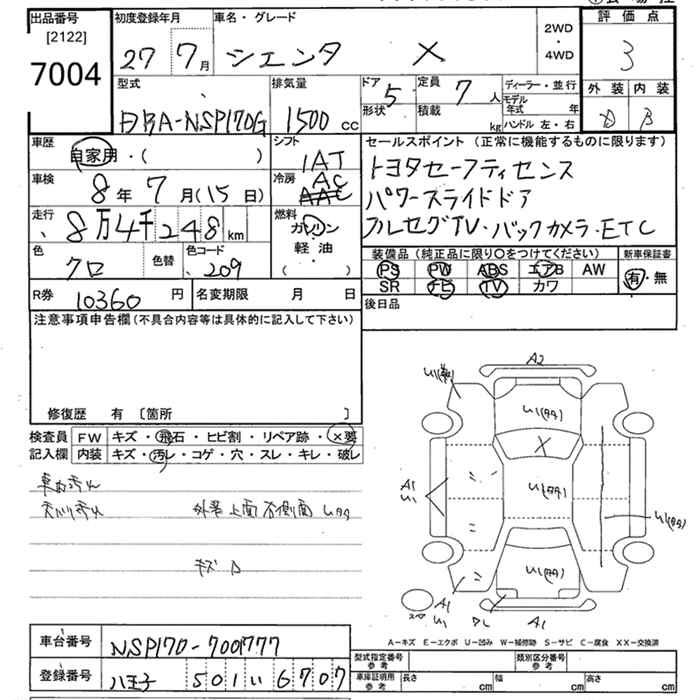 出品番号 [2122] 7004
初度登録年月 27 7月
車名・グレード シエンタ X
2WD・4WD
評価点 3
外装 内装
D B
型式 DBA-NSP170G
排気量 1500 cc
ドア 5
形状
定員 7 人
積載 kg
ディーラー・並行
モデル年式 年
ハンドル 左・右
車歴 自家用・( )
シフト IAT
セールスポイント (正常に機能するものに限ります)
トヨタセーフティセンス
パワースライドドア
フルセグTV・バックカメラ・ETC
車検 8年 7月(15日)
冷房 AC AAC
走行 8万4千248 km
燃料 ガソリン 軽油・( )
色 クロ
色替
色コード 209
装備品 (純正品に限り〇をつけてください)
新車保証書
PS PW ABS エアB AW
SR ナビ TV カワ
有・無
R券 10360 円
名変期限 月 日
後日品
注意事項申告欄 (不具合内容等は具体的に記入して下さい)
修復歴 有 [箇所 ]
検査員記入欄
FW キズ・飛石・ヒビ割・リペア跡・X要
内装 キズ・汚レ・コゲ・穴・スレ・キレ・破レ
車内汚れ
天バリ汚れ
外装上面 右側面
キズ
A2
U1
U1(タタ)
X
A1
U1
U1(タタ)
U1(タタ)
U1(タタ)
A1
U1
A1
スペア
A-キズ E-エクボ U-凹み W-補修跡 S-サビ C-腐食 XX-交換済
車台番号 NSP170-7001777
登録番号 八王子 501 い 6707
型式指定番号 参考
類別区分番号 参考
車庫証明用 参考
長さ cm
幅 cm
高さ cm